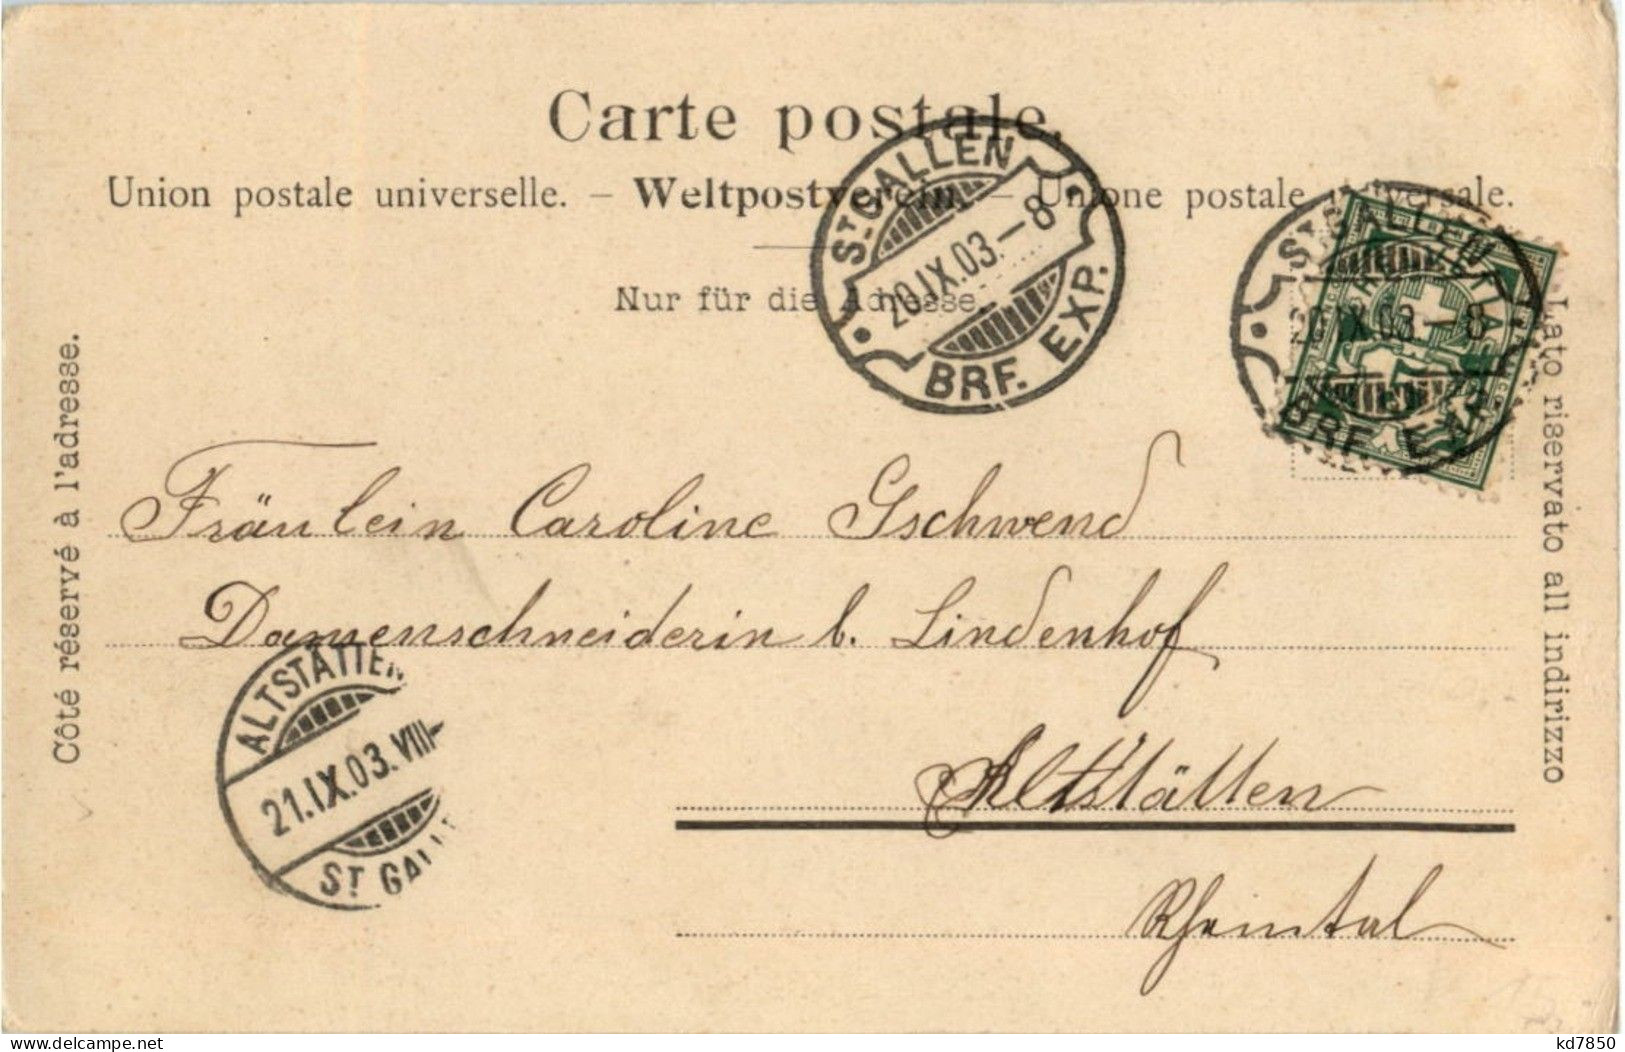 Carte postale.
Union postale universelle. – Weltpostverein – Unione postale universale.
Nur für die Adresse.
Côté réservé à l'adresse.
Lato riservato all indirizzo
ST. GALLEN
20.IX.03.–8
BRF. EXP.
ST. GALLEN
20.IX.03.–8
BRF. EXP.
Fräulein Caroline Gschwend
Damenschneiderin b. Lindenhof
Altstätten
Rheintal
ALTSTÄTTEN
21.IX.03.VIII–
ST. GALL
kd7850